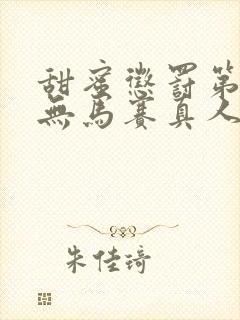 甜蜜懲罰第
無馬賽真人
朱佳琦